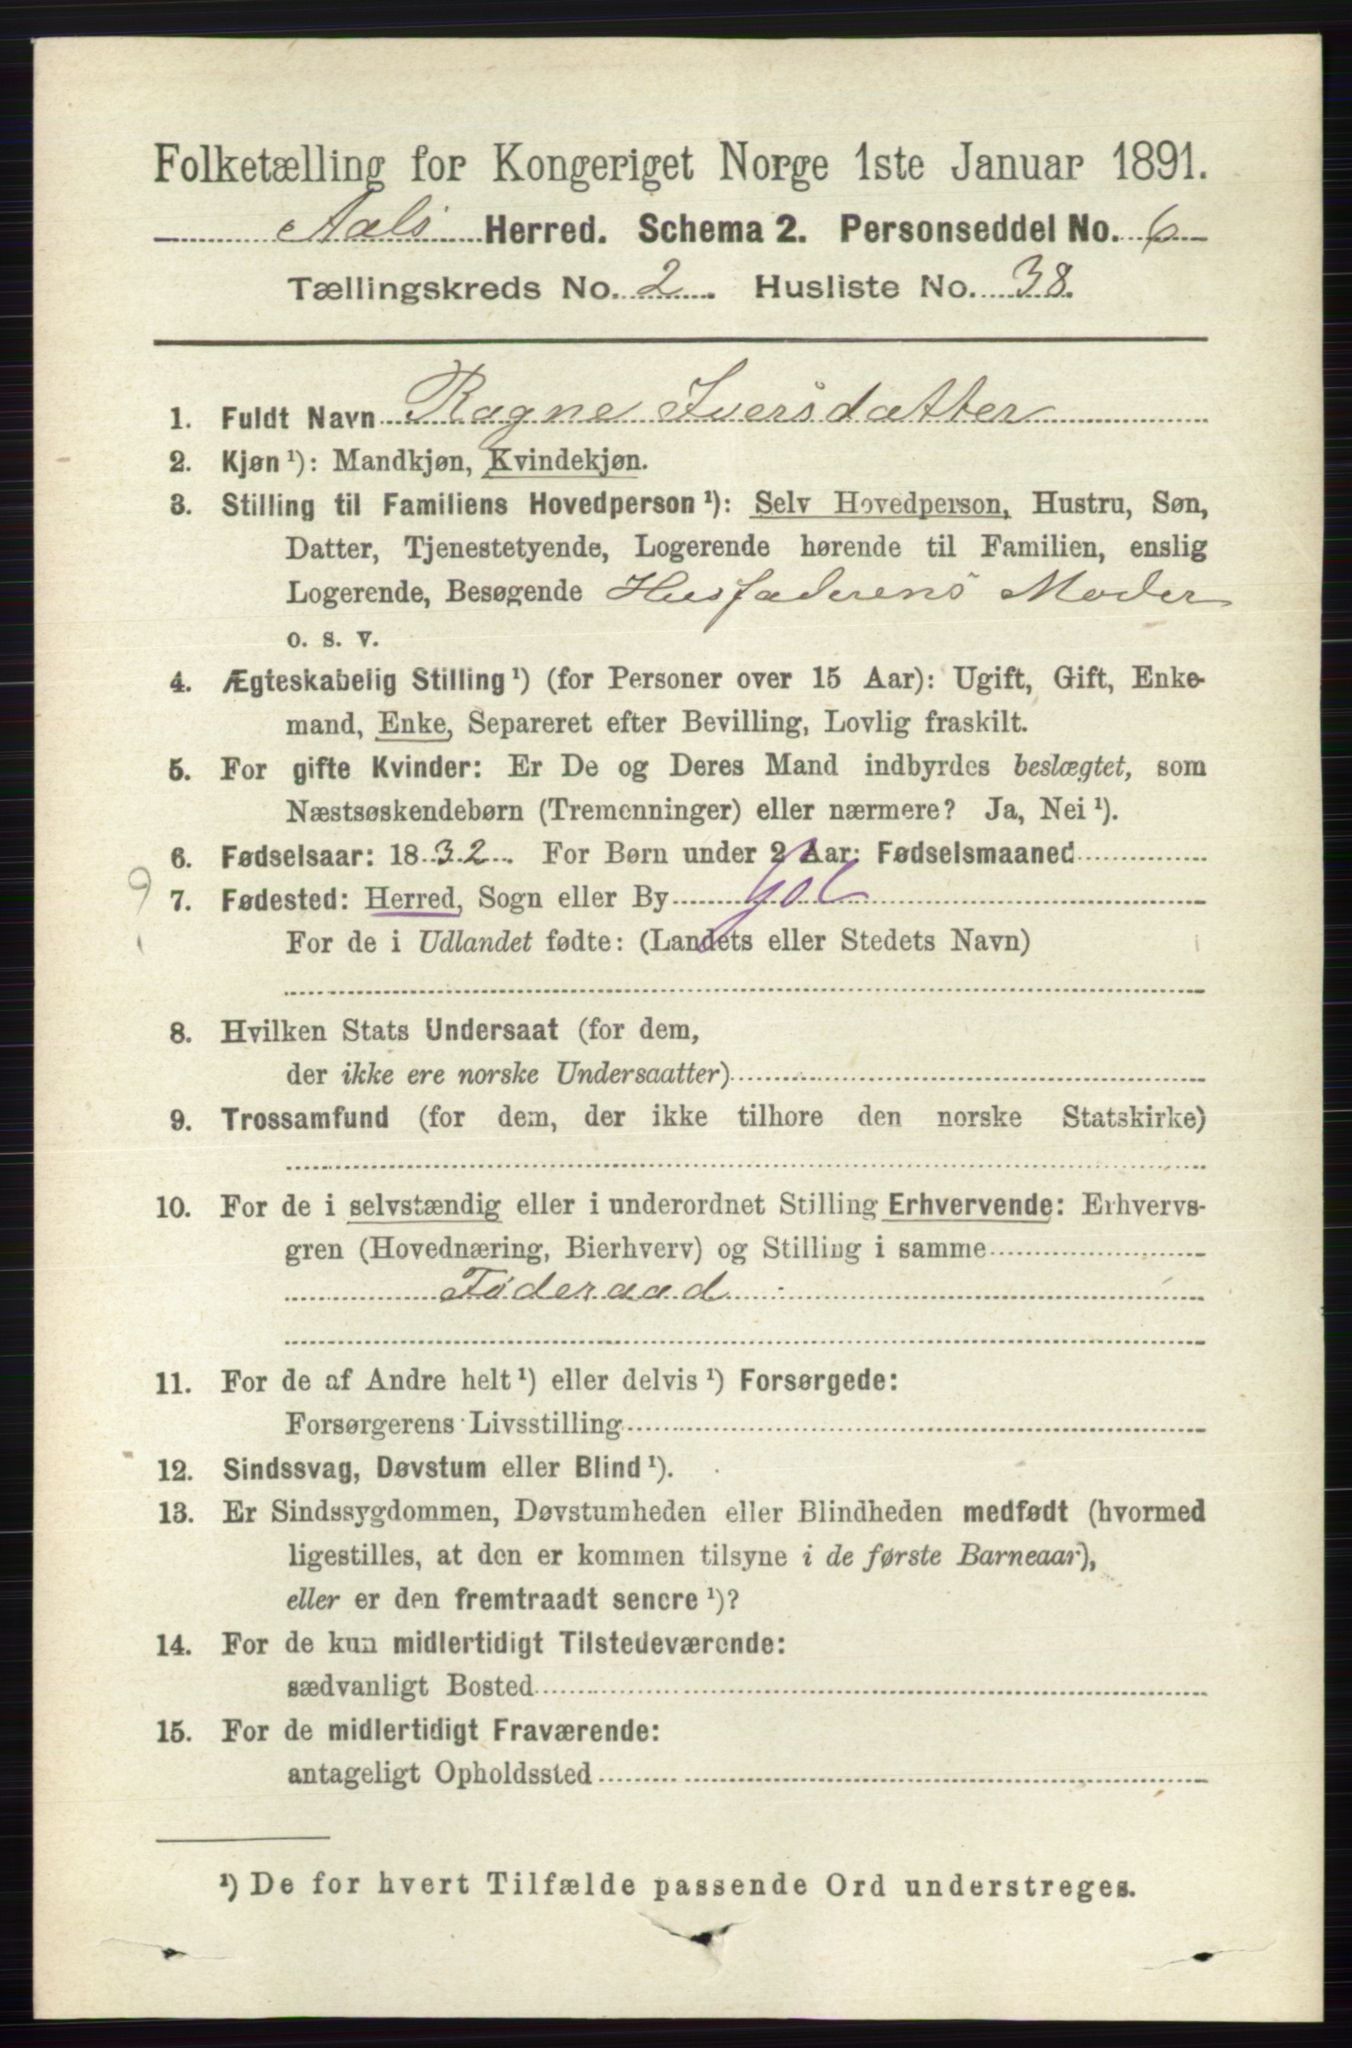 Folketælling for Kongeriget Norge 1ste Januar 1891.
Aals Herred. Schema 2. Personseddel No. 6
Tællingskreds No. 2. Husliste No. 38.
1. Fuldt Navn Ragne Iversdatter
2. Kjøn ¹): Mandkjøn, Kvindekjøn.
3. Stilling til Familiens Hovedperson ¹): Selv Hovedperson, Hustru, Søn,
Datter, Tjenestetyende, Logerende hørende til Familien, enslig
Logerende, Besøgende Husfaderens Moder
o. s. v.
4. Ægteskabelig Stilling ¹) (for Personer over 15 Aar): Ugift, Gift, Enke-
mand, Enke, Separeret efter Bevilling, Lovlig fraskilt.
5. For gifte Kvinder: Er De og Deres Mand indbyrdes beslægtet, som
Næstsøskendebørn (Tremenninger) eller nærmere? Ja, Nei ¹).
6. Fødselsaar: 1832. For Børn under 2 Aar: Fødselsmaaned
9
7. Fødested: Herred, Sogn eller By Gol
For de i Udlandet fødte: (Landets eller Stedets Navn)
8. Hvilken Stats Undersaat (for dem,
der ikke ere norske Undersaatter)
9. Trossamfund (for dem, der ikke tilhøre den norske Statskirke)
10. For de i selvstændig eller i underordnet Stilling Erhvervende: Erhvervs-
gren (Hovednæring, Bierhverv) og Stilling i samme
Føderaad
11. For de af Andre helt ¹) eller delvis ¹) Forsørgede:
Forsørgerens Livsstilling
12. Sindssvag, Døvstum eller Blind ¹).
13. Er Sindssygdommen, Døvstumheden eller Blindheden medfødt (hvormed
ligestilles, at den er kommen tilsyne i de første Barneaar),
eller er den fremtraadt senere ¹)?
14. For de kun midlertidigt Tilstedeværende:
sædvanligt Bosted
15. For de midlertidigt Fraværende:
antageligt Opholdssted
¹) De for hvert Tilfælde passende Ord understreges.